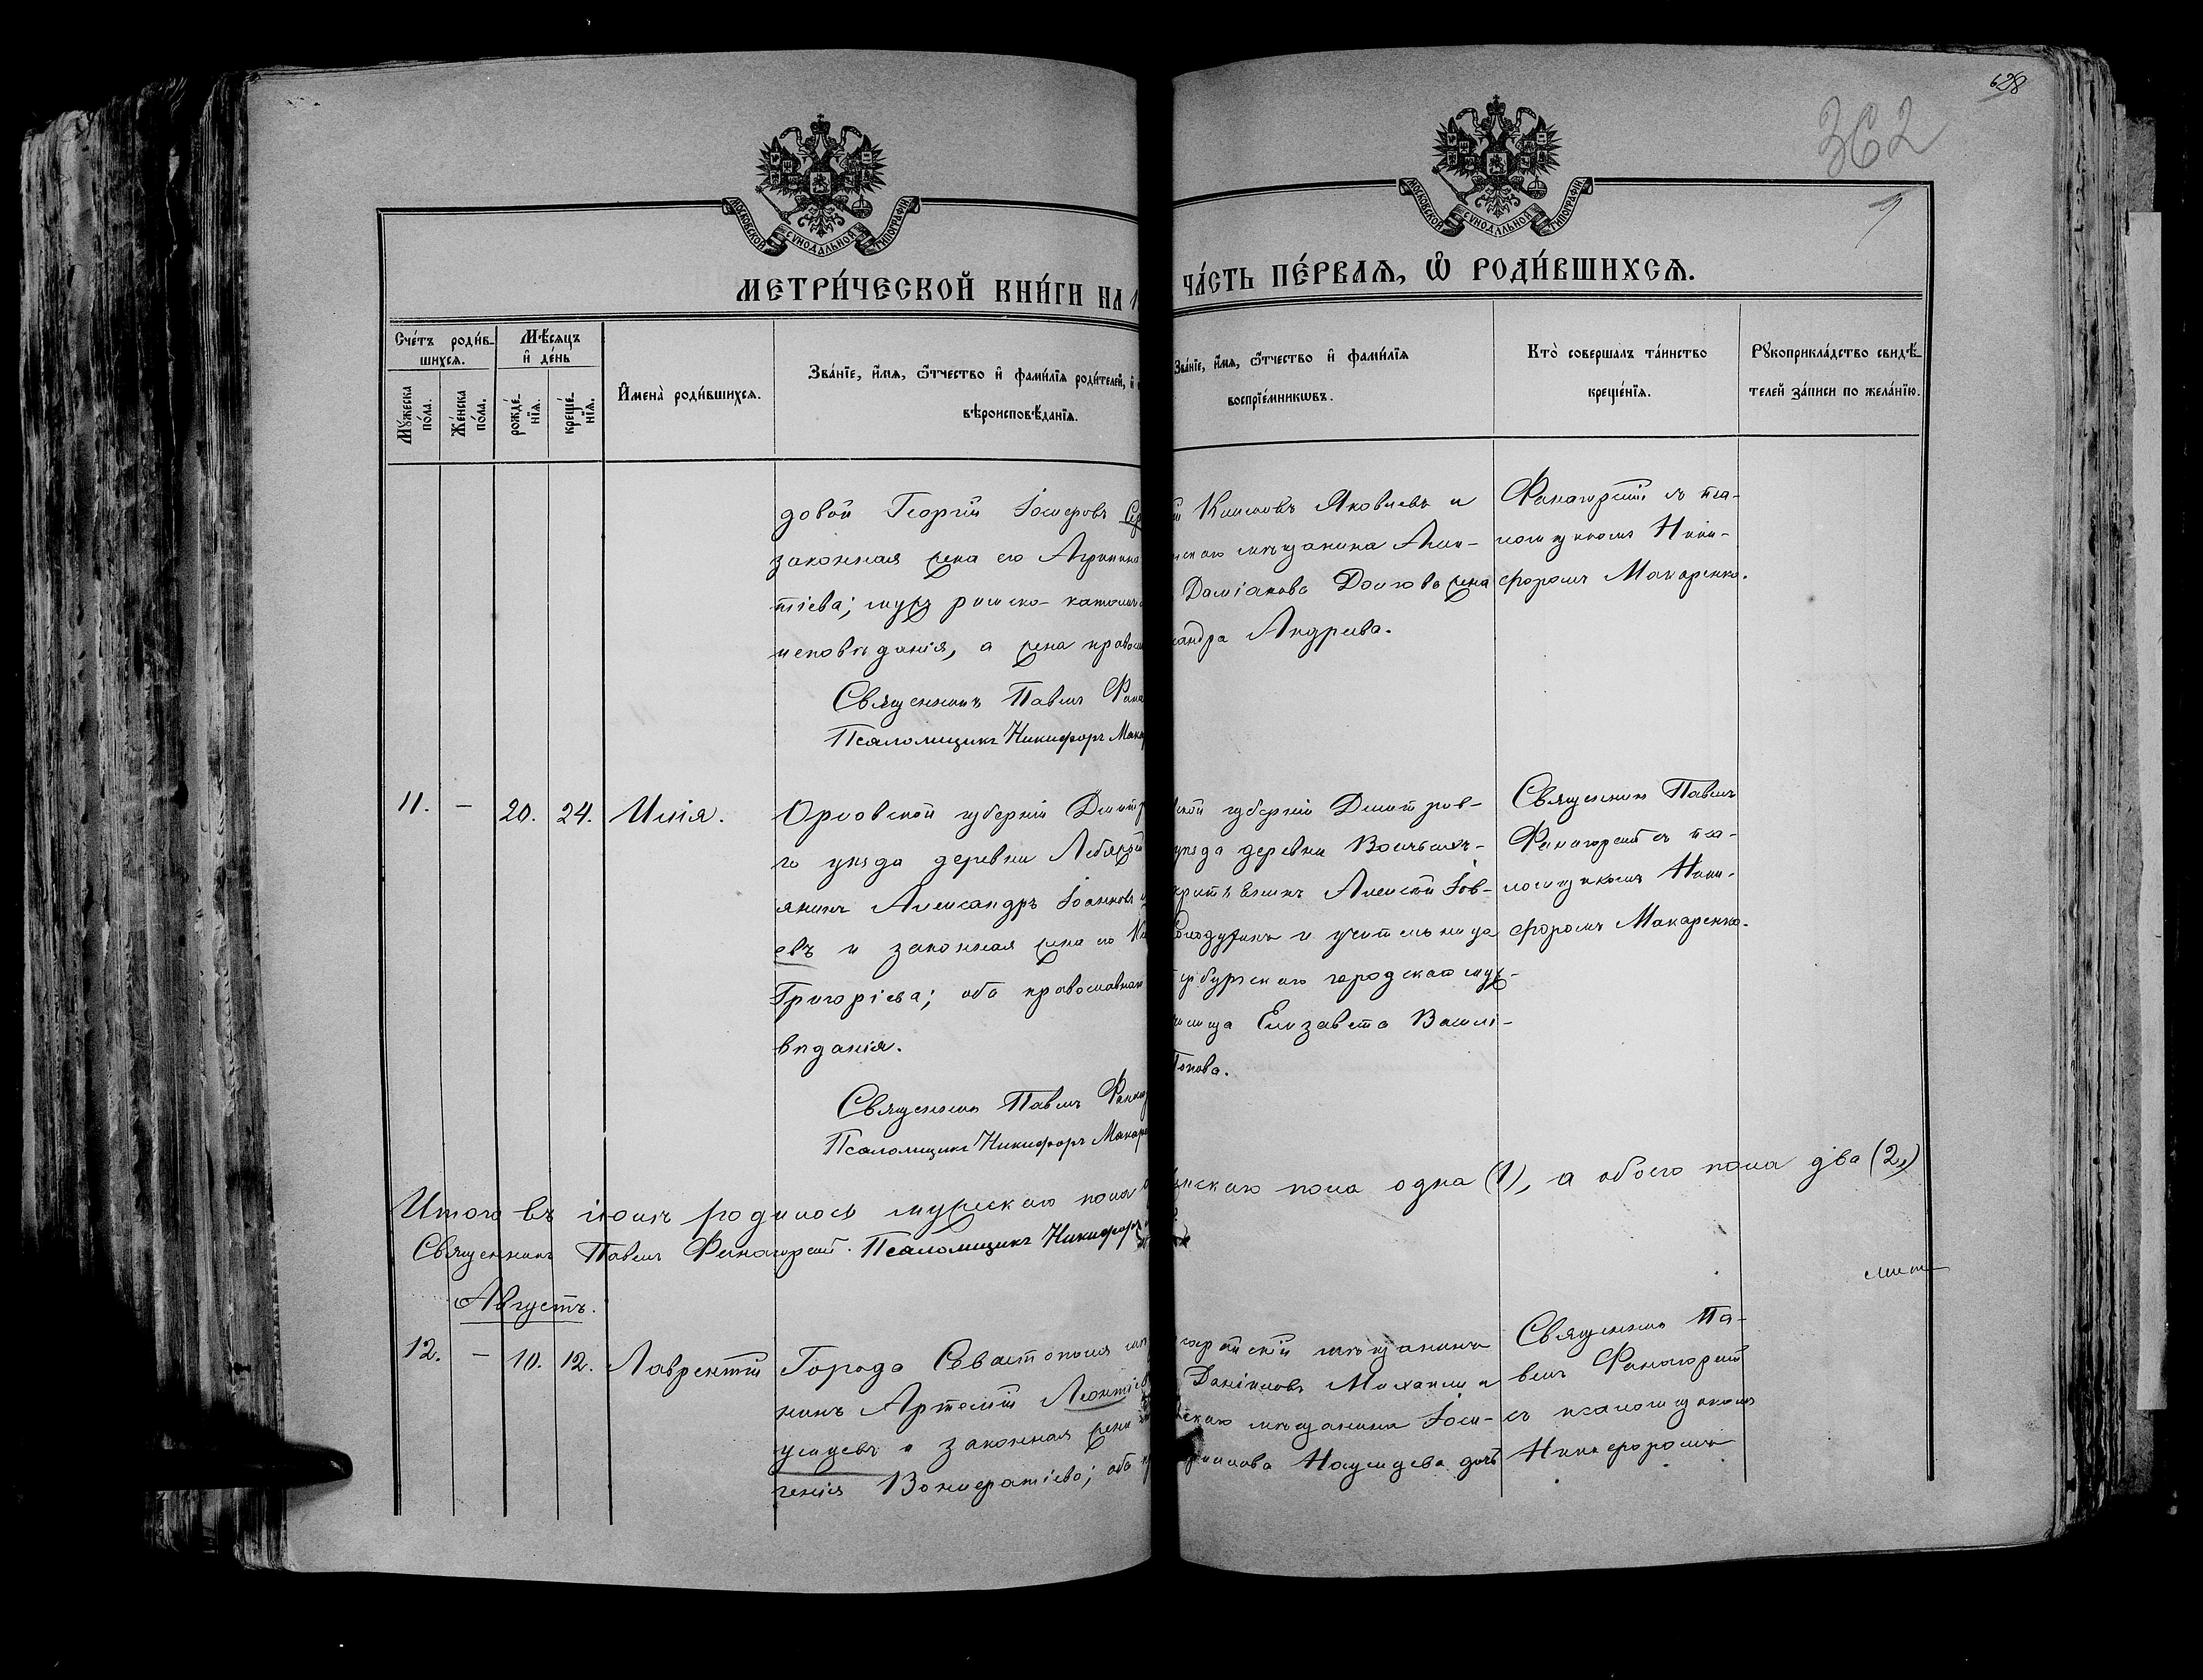 628
362
МОСКОВСКОЙ СѴНОДАЛЬНОЙ ТИПОГРАФІИ
МОСКОВСКОЙ СѴНОДАЛЬНОЙ ТИПОГРАФІИ
МЕТРИ́ЧЕСКОЙ КНИ́ГИ НА 1
ЧА́СТЬ ПЕ́РВАѦ, Ѡ҆ РОДИ́ВШИХСѦ.
Сче́тъ роди́в-
шихсѧ.
Мꙋ́жеска по́ла.
Же́нска по́ла.
Мѣ́сѧцъ
и҆ де́нь
рожде́-
нїѧ.
креще́-
нїѧ.
И҆мена̀ роди́вшихсѧ.
Зва́нїе, и҆́мѧ, ѻ҆́тчество и҆ фами́лїѧ роди́телей, и҆
вѣроисповѣ́данїѧ.
Зва́нїе, и҆́мѧ, ѻ҆́тчество и҆ фами́лїѧ
воспрїе́мникѡвъ.
Кто̀ соверша́лъ та́инство
креще́нїѧ.
Рꙋкоприкла́дство свидѣ́-
телей за́писи по жела́нїю.
довой Георгій Іосифовъ
законная жена его Агрипина
тіева; мужъ римско-католич
исповѣданія, а жена правосл
Священникъ Павелъ Фана
Псаломщикъ Никифоръ Мака
Климовъ Яковлевъ и
мѣщанина Алек-
Даміанова Долгова жена
сандра Андреева.
Фанагорскій съ пса-
ломщикомъ Ники-
форомъ Макаренко.
11. – 20. 24. Илія.
Орловской губерніи Дмитр
го уѣзда деревни Лебяжей
янинъ Александръ Іоанновъ
евъ и законная жена его
Григоріева; оба православнаго
вѣданія.
Священникъ Павелъ Фанаг
Псаломщикъ Никифоръ Макаре
ской губерніи Дмитров-
уѣзда деревни
крестьянинъ Алексѣй Іов-
и учительница
городскаго муж-
лища Елизавета Васил-
Попова.
Священникъ Павелъ
Фанагорскій съ пса-
ломщикомъ Ники-
форомъ Макаренко.
Итого въ іюлѣ родилось мужескаго пола
женскаго пола одна (1), а обоего пола два (2,)
Священникъ Павелъ Фанагорскій. Псаломщикъ Никифоръ
Августъ.
12. – 10. 12. Лаврентій
Города Севастополя мѣ
нинъ Артемій Леонтіев
и законная жена
генія Вонифатіева; оба
мѣщанинъ
Даніиловъ и
скаго мѣщанина Іоси-
дочь
Священникъ Па-
велъ Фанагорскій
съ псаломщикомъ
Никифоромъ